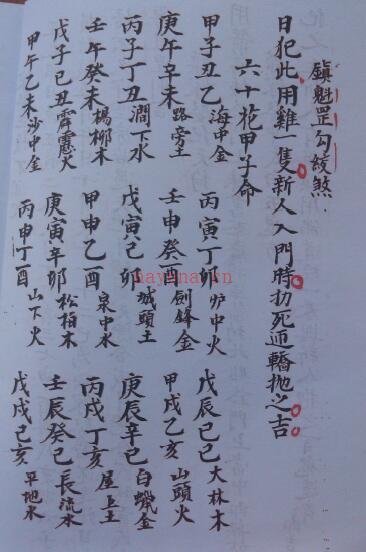 鎮魁罡勾絞煞
日犯此用雞一隻新人入門時扐死轎拋之吉
六十花甲子命
甲子丑乙海中金 丙寅丁卯炉中火 戊辰己巳大林木
庚午辛未路旁土 壬申癸酉劍鋒金 甲戌乙亥山頭火
丙子丁丑澗下水 戊寅己卯城頭土 庚辰辛巳白蠟金
壬午癸未楊柳木 甲申乙酉泉中水 丙戌丁亥屋上土
戊子己丑霹靂火 庚寅辛卯松柏木 壬辰癸巳長流水
甲午乙未沙中金 丙申丁酉山下火 戊戌己亥平地水